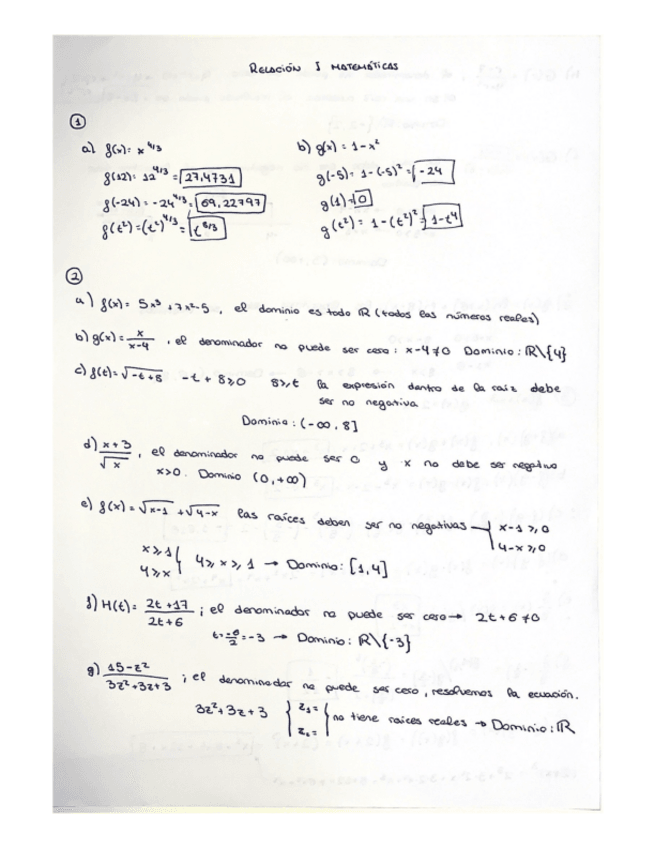 RELACIÓN I MATEMÁTICAS
①
a) f(x)= x^4/3
f(12)= 12^4/3 = 27,4731
f(-24)= -24^4/3 = 69,22797
f(t²)=(t²)^4/3 = t^8/3
b) g(x) = 1-x²
g(-5)= 1-(-5)² = -24
g(1)=0
g(t²) = 1-(t²)² = 1-t⁴
②
a) f(x)= 5x³+7x²-5, el dominio es todo ℝ (todos los números reales)
b) g(x)= x/x-4, el denominador no puede ser cero: x-4≠0 Dominio: ℝ\{4}
c) f(t)=√-t+8 -t+8⩾0 8⩾t la expresión dentro de la raíz debe
ser no negativa
Dominio: (-∞, 8]
d) x+3/√x, el denominador no puede ser 0 y x no debe ser negativo
x>0. Dominio (0,+∞)
e) f(x)=√x-1 +√4-x las raíces deben ser no negativas { x-1⩾0
4-x⩾0
x⩾1
4⩾x } 4⩾x⩾1 → Dominio: [1,4]
f) H(t)= 2t+17/2t+6; el denominador no puede ser cero→ 2t+6≠0
t=-6/2=-3 → Dominio: ℝ\{-3}
g) 15-z²/3z²+3z+3; el denominador no puede ser cero, resolvemos la ecuación.
3z²+3z+3 { z₁=
z₂= { no tiene raíces reales → Dominio: ℝ